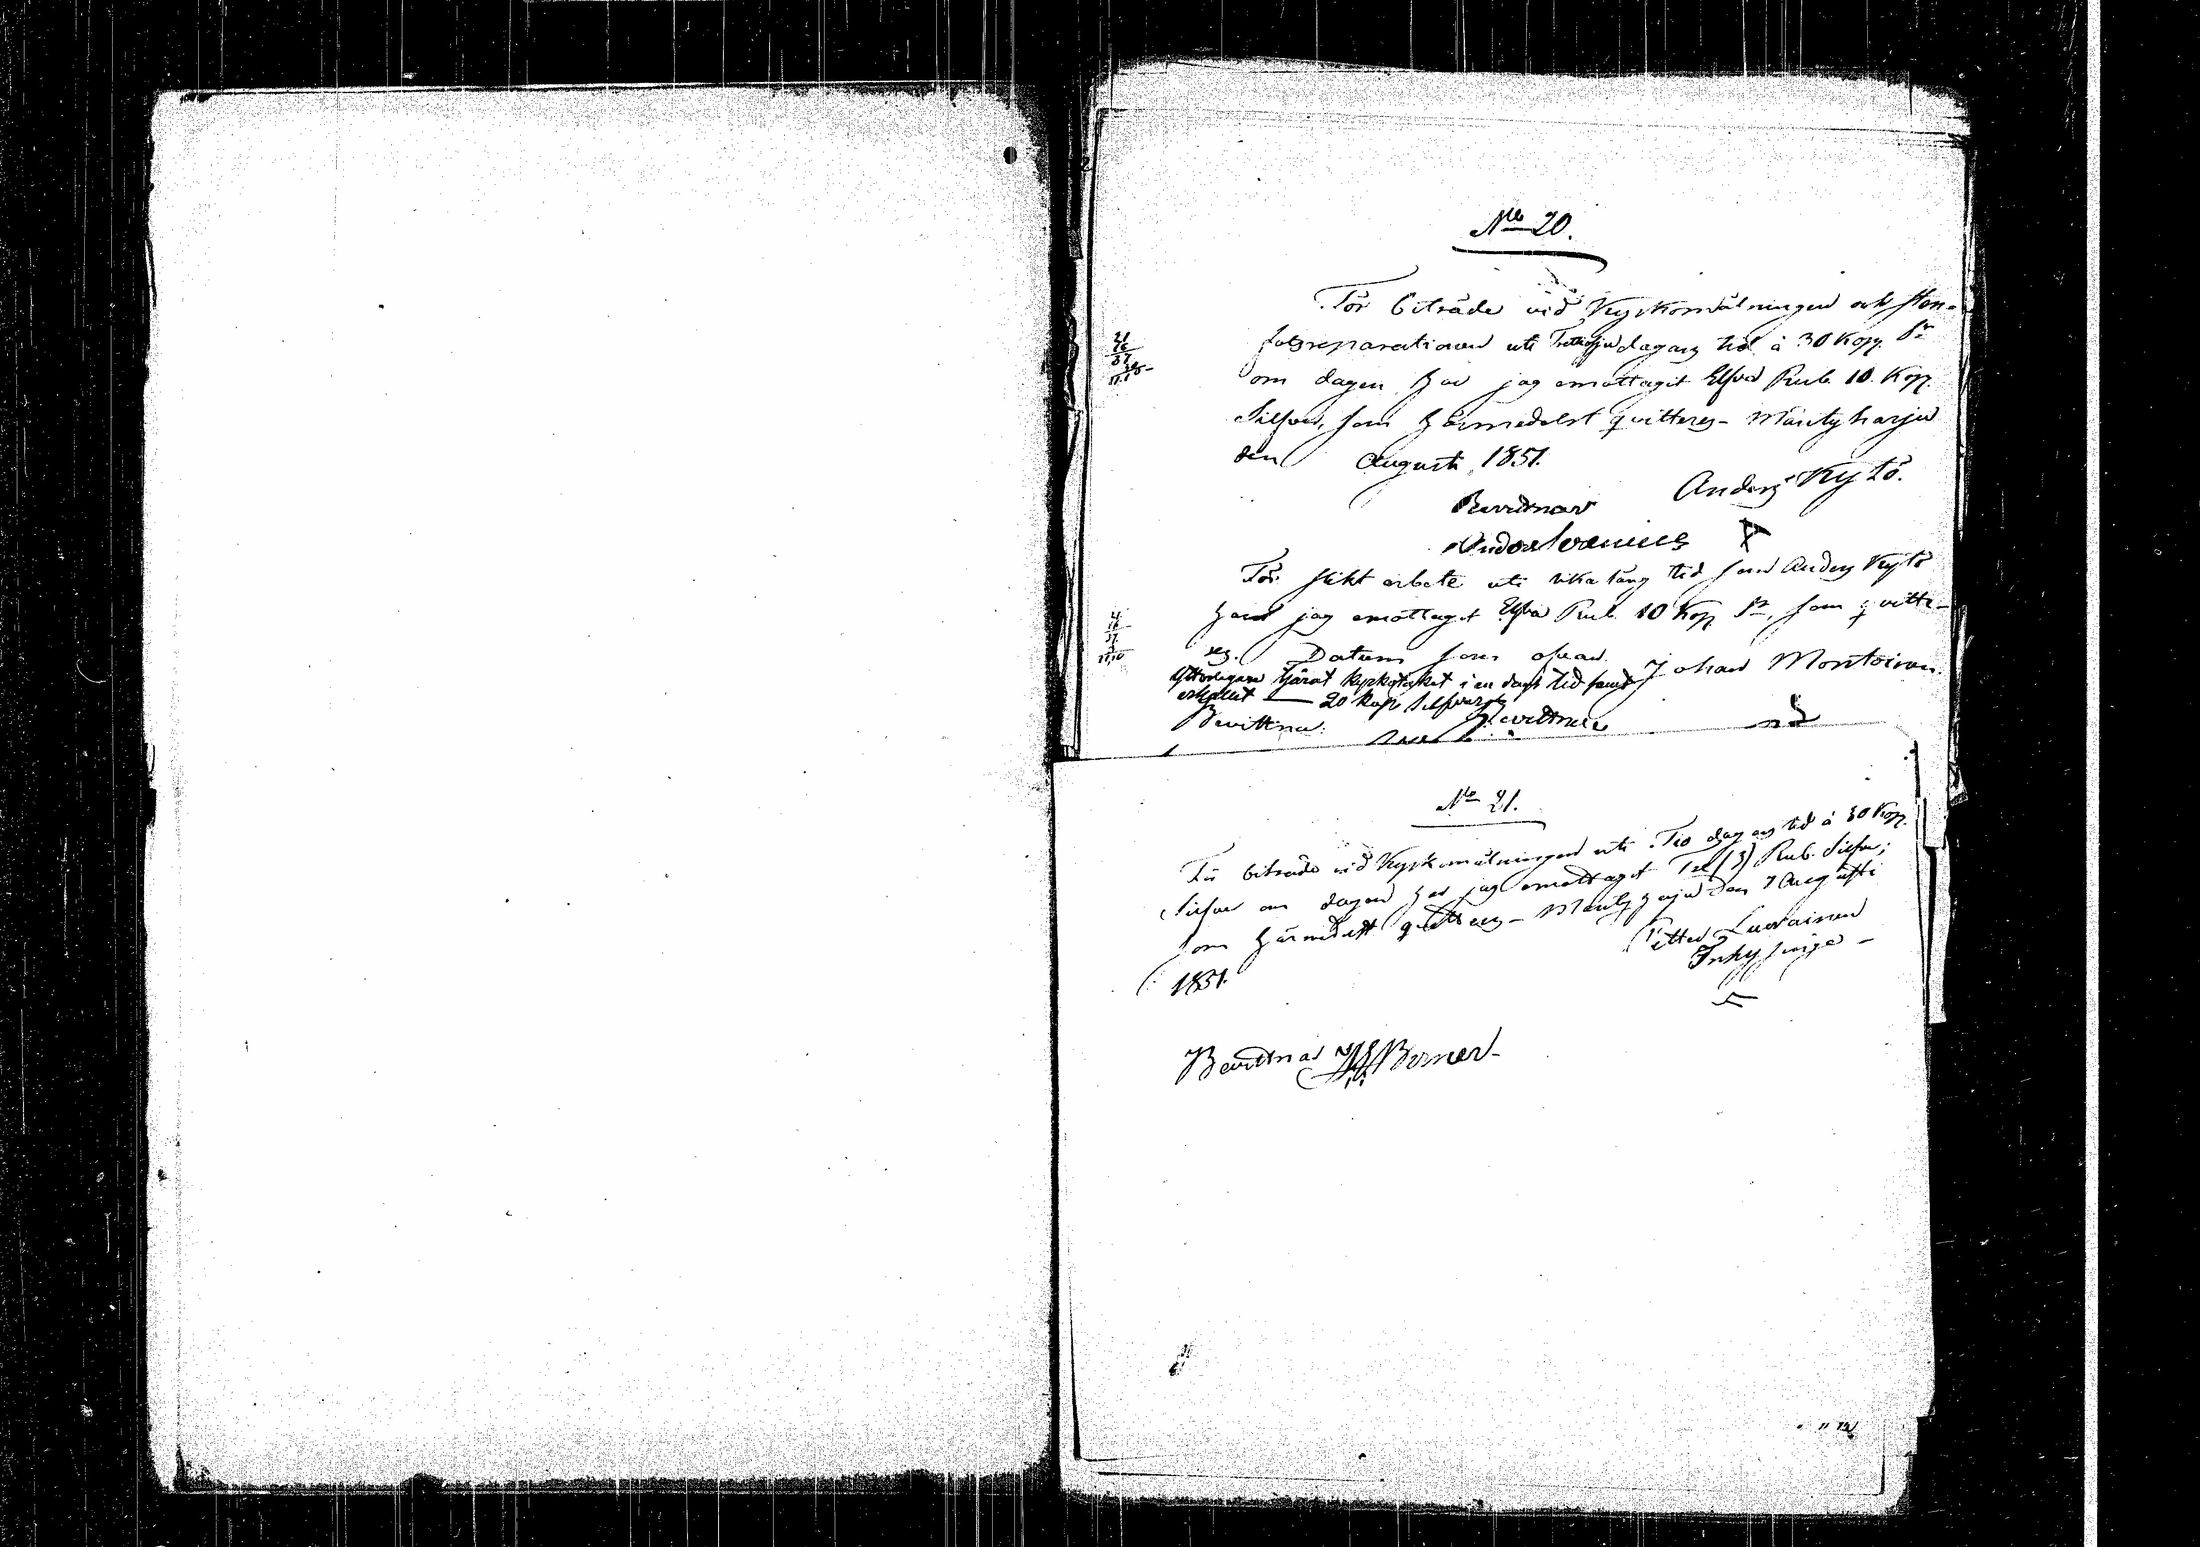 No 20.
För biträde vid Kyrkomålningen och Sten-
fotsreparationen uti Trettiosju dagars tid à 30 Kop. Sr
om dagen har jag emottagit Elfva Rub. 10. Kop.
Silfver, som härmedelst qvitteras - Mäntyharju
den Augusti 1851.
Anders Kytö.
Bevittnar
21
16
37
För slikt arbete uti lika lång tid som Anders Kytö
har jag emottagit Elfva Rub. 10 Kop Sr, som qvitte-
ras. Datum som ofvan. Johan Montoinen.
Ytterligare tjärat kyrkotaket i en dags tid samt
erhållit — 20 Kop Silfver
Bevittna: Bevittnar
No 21.
För biträde vid Kyrkomålningen uti Tio dagars tid à 30 Kop.
Silfver om dagen har jag emottagit Tre (3) Rub. Silfver;
som härmedelst qvitteras - Mäntyharju den 7 Augusti
1851.
Petter Luoainen
Inhysinge -
Bevittnas Borner-